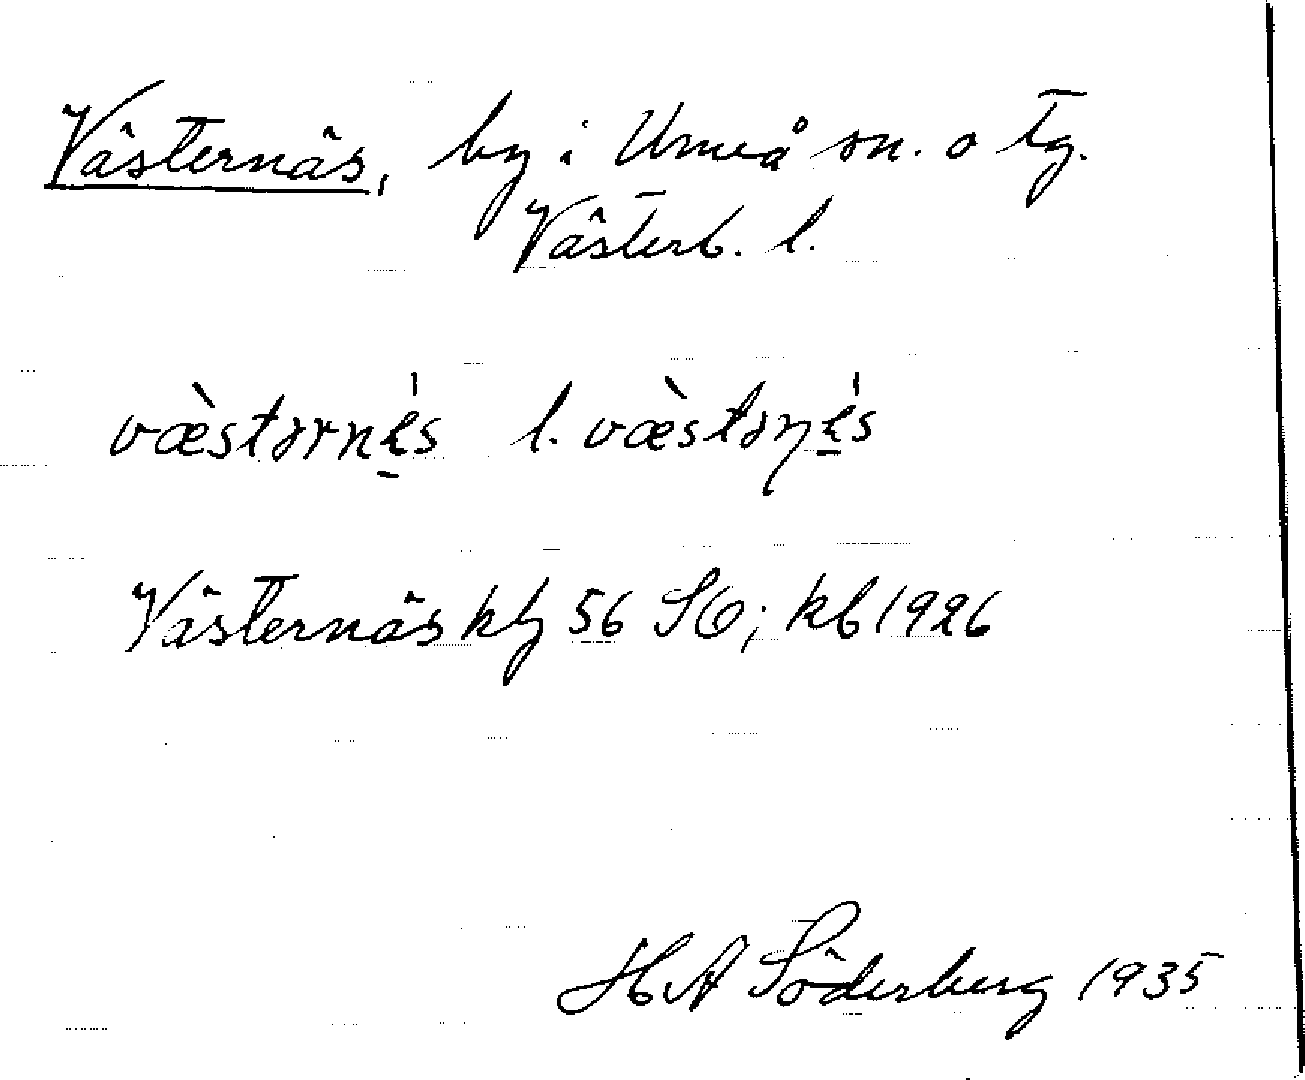 Västernäs, by i Umeå sn. o tg.
Västerb. l.
væ̀stərnés l. væ̀stəṇés
Västernäs kbl 56 SO; kb 1926
H A Söderberg 1935